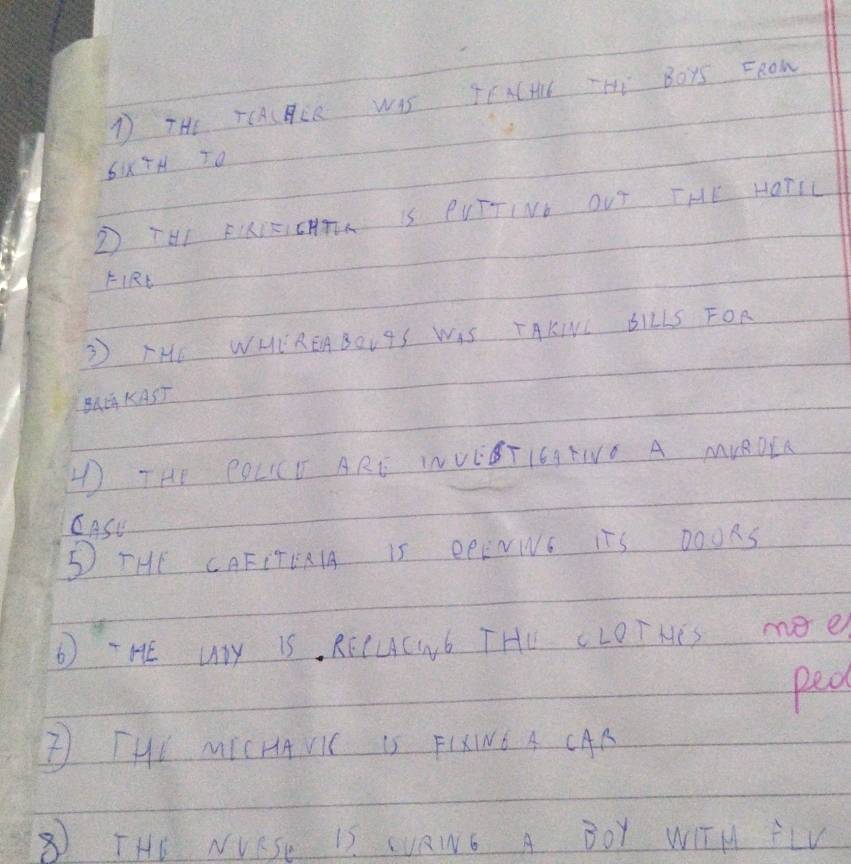 1) THE TEACHER WAS TEACHIE THE BOYS FROM
SIXTH TO
2) THE FIREFIGHTER IS PUTTING OUT THE HOTEL
FIRE
3) THE WHEREABOUTS WAS TAKING BILLS FOR
BREAKAST
4) THE POLICE ARE INVESTIGATING A MURDER
CASE
5) THE CAFETERIA IS OPENING ITS DOORS
6) THE LADY IS REPLACING THE CLOTHES no es
ped
7) THE MECHANIC IS FIXING A CAR
8) THE NURSE IS CURING A BOY WITH FLU